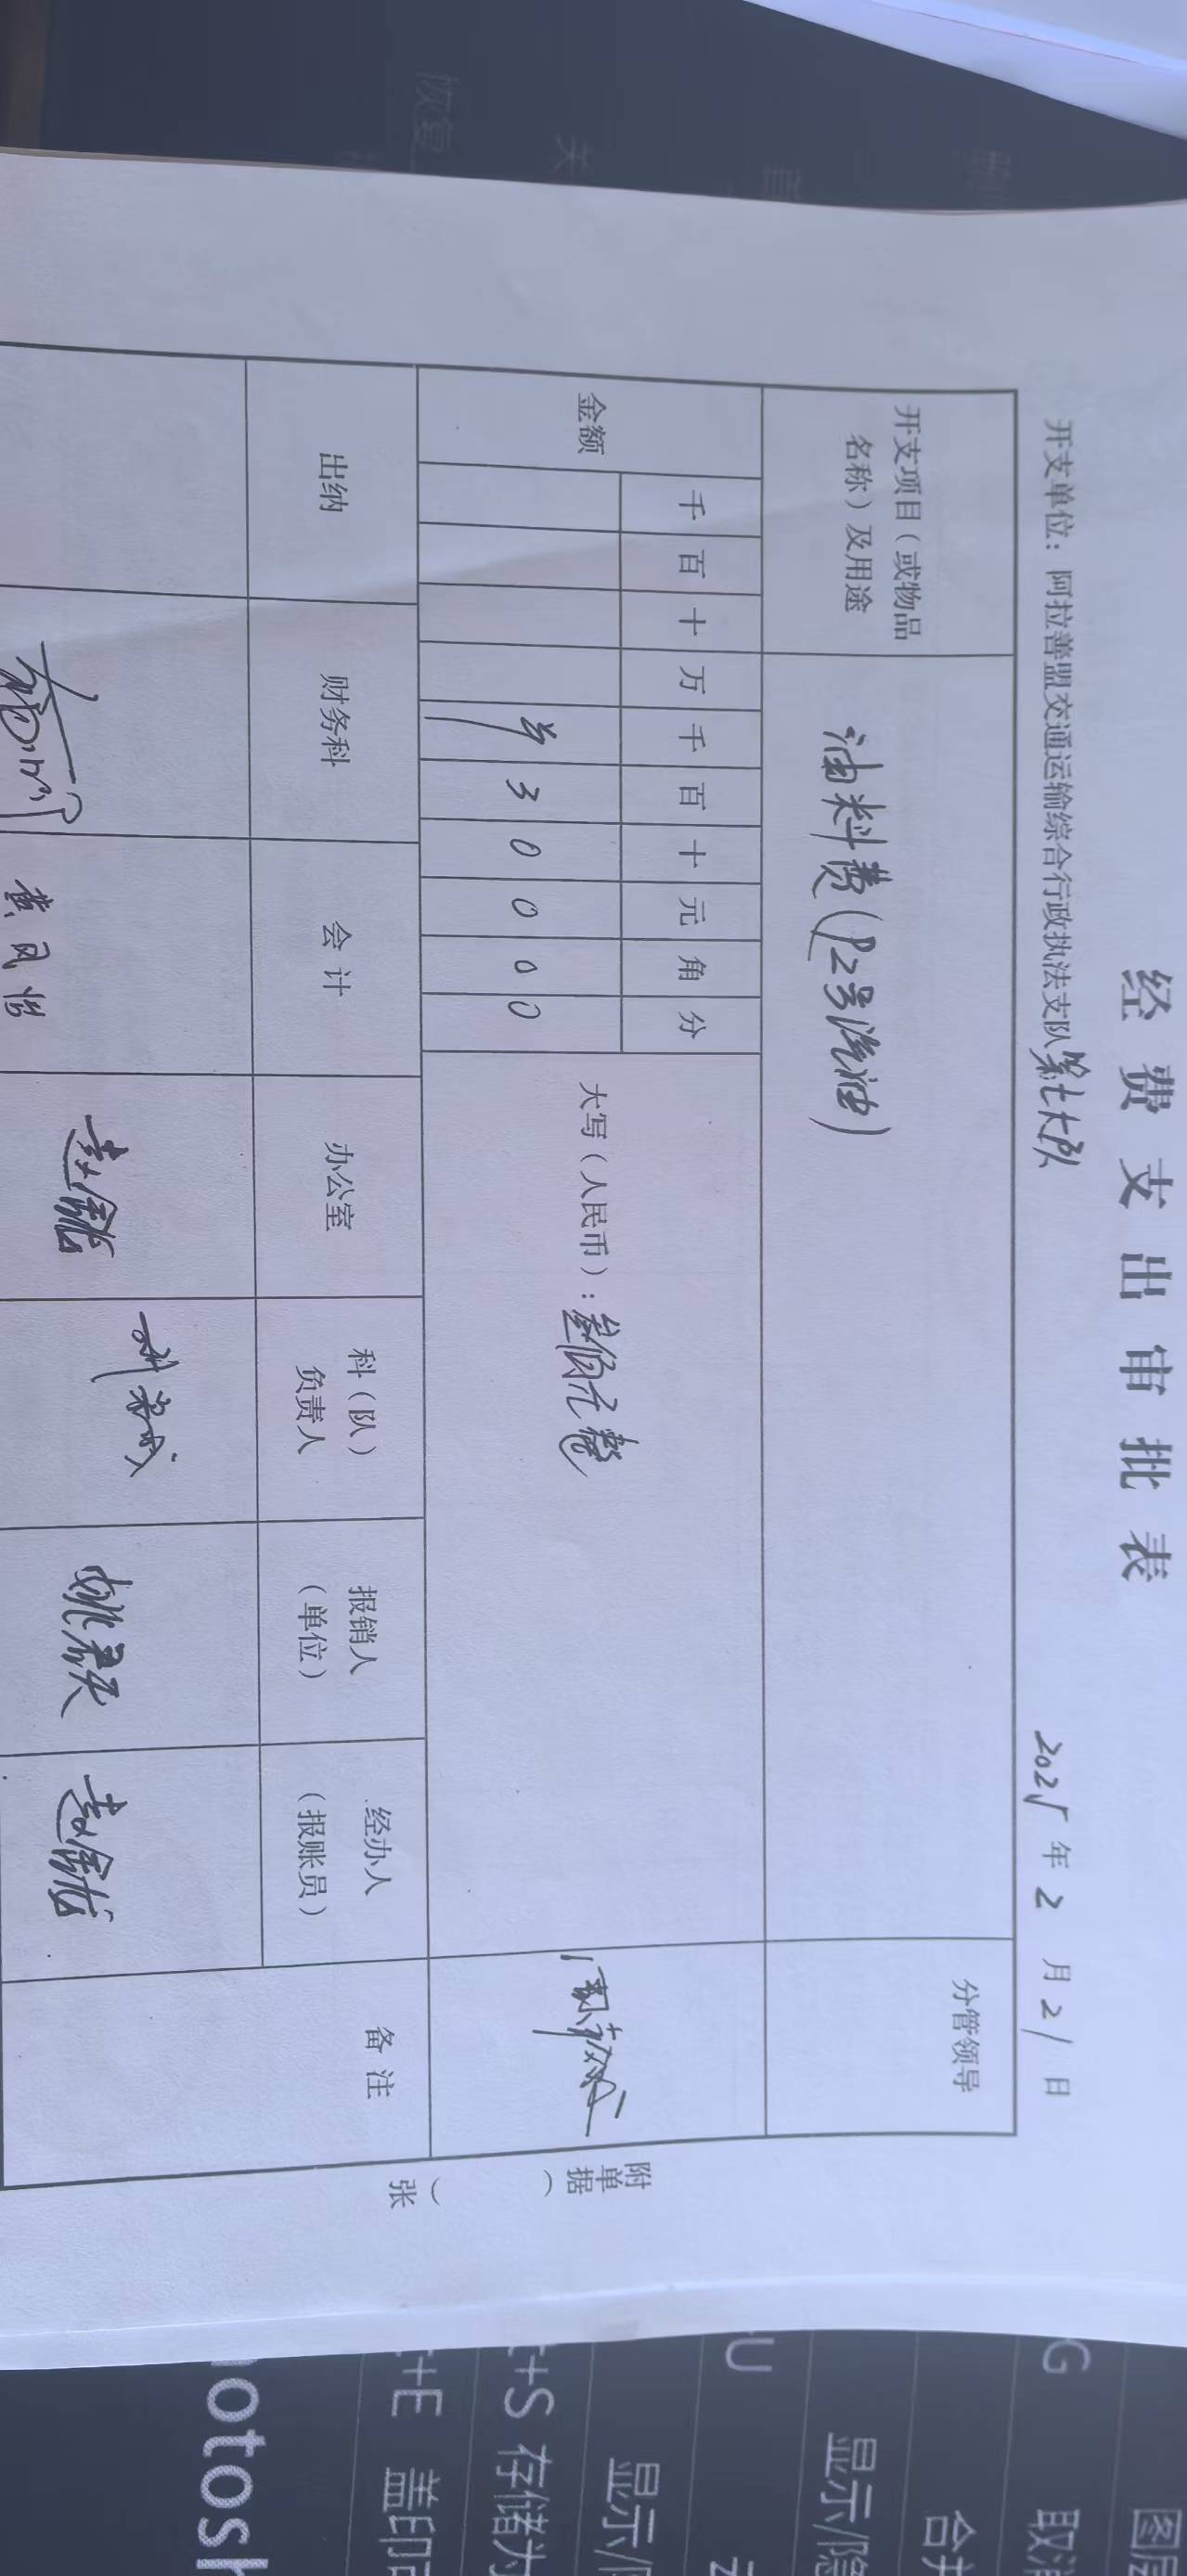 经费支出审批表
开支单位：阿拉善盟交通运输综合行政执法支队第七大队 2025年2月21日
开支项目（或物品名称）及用途
油料费(92号汽油)
分管领导
金额
千 百 十 万 千 百 十 元 角 分
¥ 3 0 0 0 0
大写（人民币）：叁佰元整
出纳
财务科
会计
办公室
科（队）负责人
报销人（单位）
经办人（报账员）
备注
黄凤
附单据（ ）张
恢复
关
G
U
取消
合并
图层
显示/隐
显示/
+S 存储为
+E 盖印
otosh